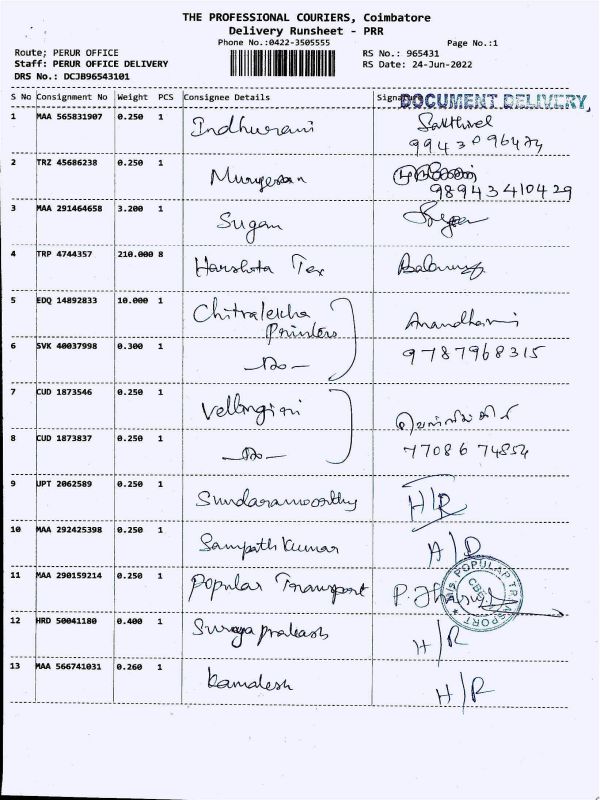 THE PROFESSIONAL COURIERS, Coimbatore
Delivery Runsheet - PRR
Phone No.:0422-3505555
Page No.:1
Route; PERUR OFFICE
RS No.: 965431
Staff: PERUR OFFICE DELIVERY
RS Date: 24-Jun-2022
DRS No.: DCJB96543101
S No Consignment No Weight PCS Consignee Details Signature
DOCUMENT DELIVERY,
1 MAA 565831907 0.250 1 Indhurani Sakthivel
99430 96474
2 TRZ 45686238 0.250 1 Murugesan
98943410429
3 MAA 291464658 3.200 1 Sugan
4 TRP 4744357 210.000 8 Harshita Tex
5 EDQ 14892833 10.000 1 Chitralekha
Printers
6 SVK 40037998 0.300 1 -Do- 9787968315
7 CUD 1873546 0.250 1 Vellingiri
8 CUD 1873837 0.250 1 -Do- 77086 74854
9 UPT 2062589 0.250 1 Sundaramoorthy H/R
10 MAA 292425398 0.250 1 Sampath Kumar A/D
11 MAA 290159214 0.250 1 Popular Transport
POPULAR TRANSPORT
CBE
12 HRD 50041180 0.400 1 Suryaprakash H/R
13 MAA 566741031 0.260 1 Kamalesh H/R